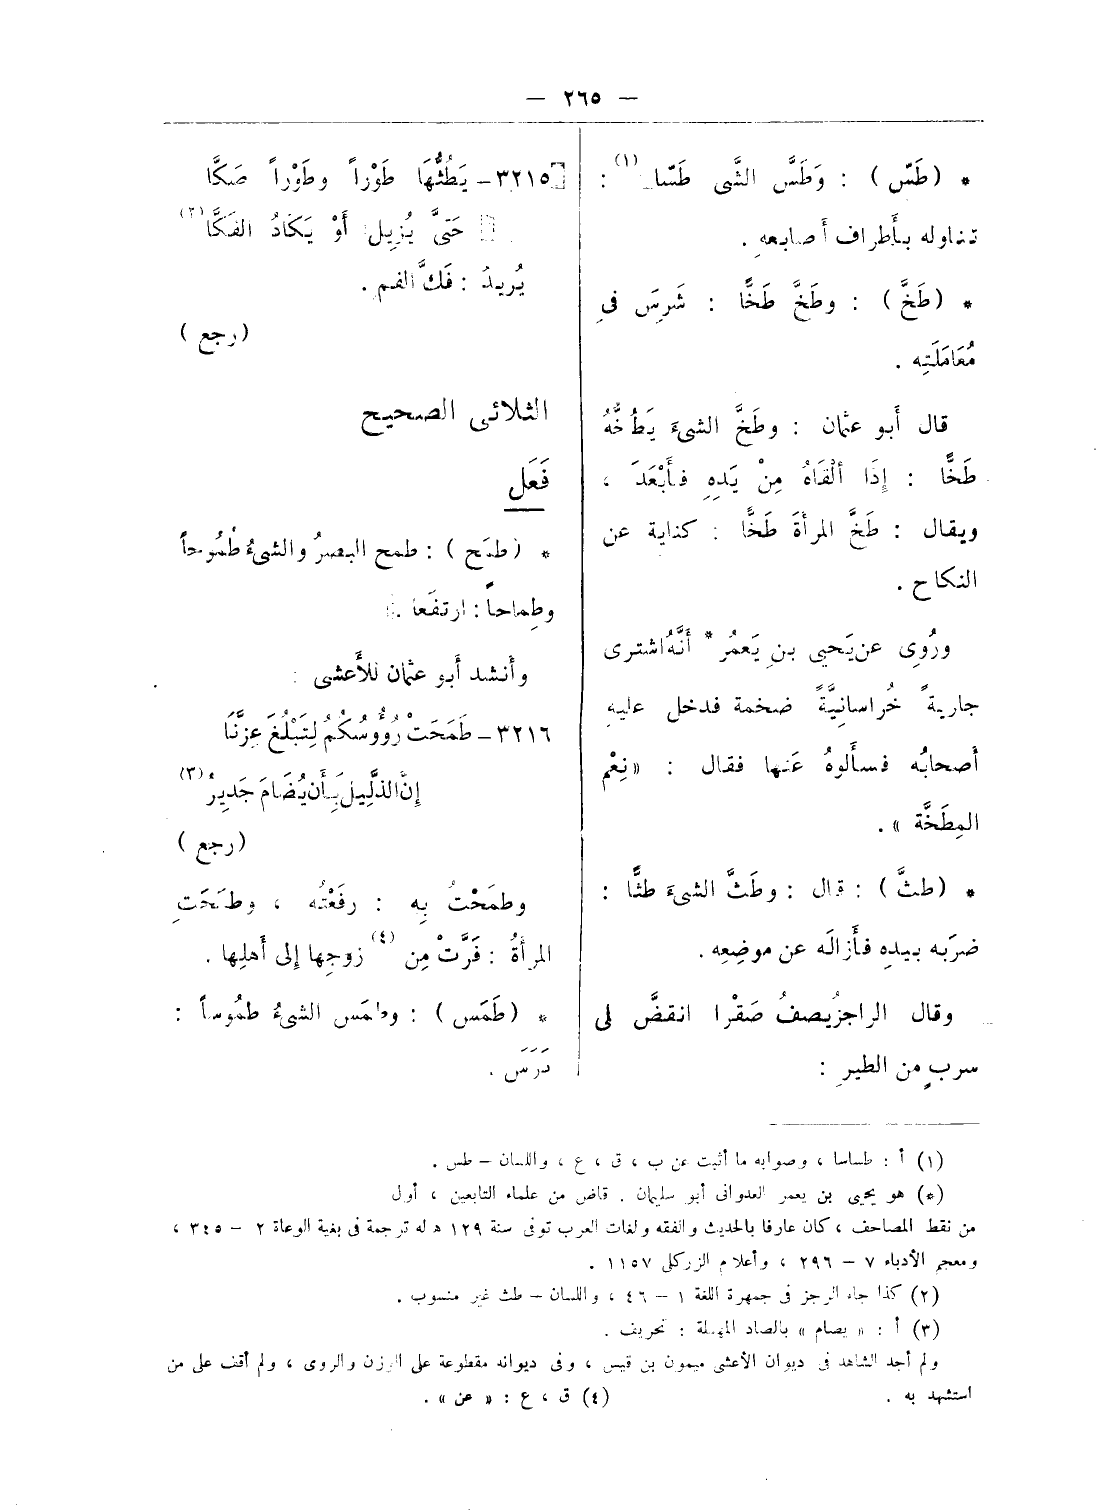 — ٢٦٥ —
* (طَسّ) : وَطَسَّ الشَّى طَسًّا (١) :
تناوله بأَطراف أَصابعهِ .
* (طَخَّ) : وطَخَّ طَخًّا : شَرِسَ فى
مُعَامَلَتِه .
قال أَبو عثمان : وطَخَّ الشىءَ يَطُخُّهُ
طَخًّا : إِذَا أَلْقَاهُ مِنْ يَدِهِ فأَبْعَدَ ،
ويقال : طَخَّ المرأةَ طَخًّا : كناية عن
النكاح .
ورُوِى عن يَحيى بنِ يَعمُر * أَنَّهُ اشترى
جاريةً خُراسانِيَّةً ضخمة فدخل عليهِ
أَصحابُه فسأَلوهُ عَنها فقال : « نِعْم
المِطَخَّة » .
* (طثَّ) : قال : وطَثَّ الشىءَ طثًّا :
ضرَبه بيدهِ فأَزالَه عن موضِعِه .
وقال الراجزُ يصفُ صَقْرا انقضَّ لى
سربٍ من الطيرِ :
٣٢١٥ – يَطُثُّهَا طَوْراً وطَوْراً صَكَّا
حَتىَّ يُزِيل أَوْ يَكَادُ الفَكَّا (٢)
يُريدُ : فَكَّ الفم .
(رجع)
الثلاثى الصحيح
فَعَل
* (طمَح) : طمح البصرُ والشىءُ طُمُوحاً
وطِماحاً : ارتفَعا .
وأَنشد أَبو عثمان للأَعشى :
٣٢١٦ – طَمَحَتْ رُؤُوسُكُمُ لِتَبْلُغَ عِزَّنَا
إِنَّ الذَّلِيلَ بِأَن يُضَامَ جَدِيرُ (٣)
(رجع)
وطمَحْتُ بِه : رفَعْتُه ، وطمَحَتِ
المرأةُ : فَرَّتْ مِن (٤) زوجِها إلى أَهلِها .
* (طَمَس) : وطمَس الشىءُ طمُوساً :
دَرَسَ .
(١) أ : طساسا ، وصوابه ما أثبت عن ب ، ق ، ع ، واللسان – طس .
(*) هو يحيى بن يعمر العدوانى أبو سليمان . قاض من علماء التابعين ، أول
من نقط المصاحف ، كان عارفا بالحديث والفقه ولغات العرب توفى سنة ١٢٩ ه له ترجمة فى بغية الوعاة ٢ – ٣٤٥ ،
ومعجم الأدباء ٧ – ٢٩٦ ، وأعلام الزركلى ١١٥٧ .
(٢) كذا جاء الرجز فى جمهرة اللغة ١ – ٤٦ ، واللسان – طث غير منسوب .
(٣) أ : « يصام » بالصاد المهملة : تحريف .
ولم أجد الشاهد فى ديوان الأعشى ميمون بن قيس ، وفى ديوانه مقطوعة على الوزن والروى ، ولم أقف على من
استشهد به . (٤) ق ، ع : « عن » .